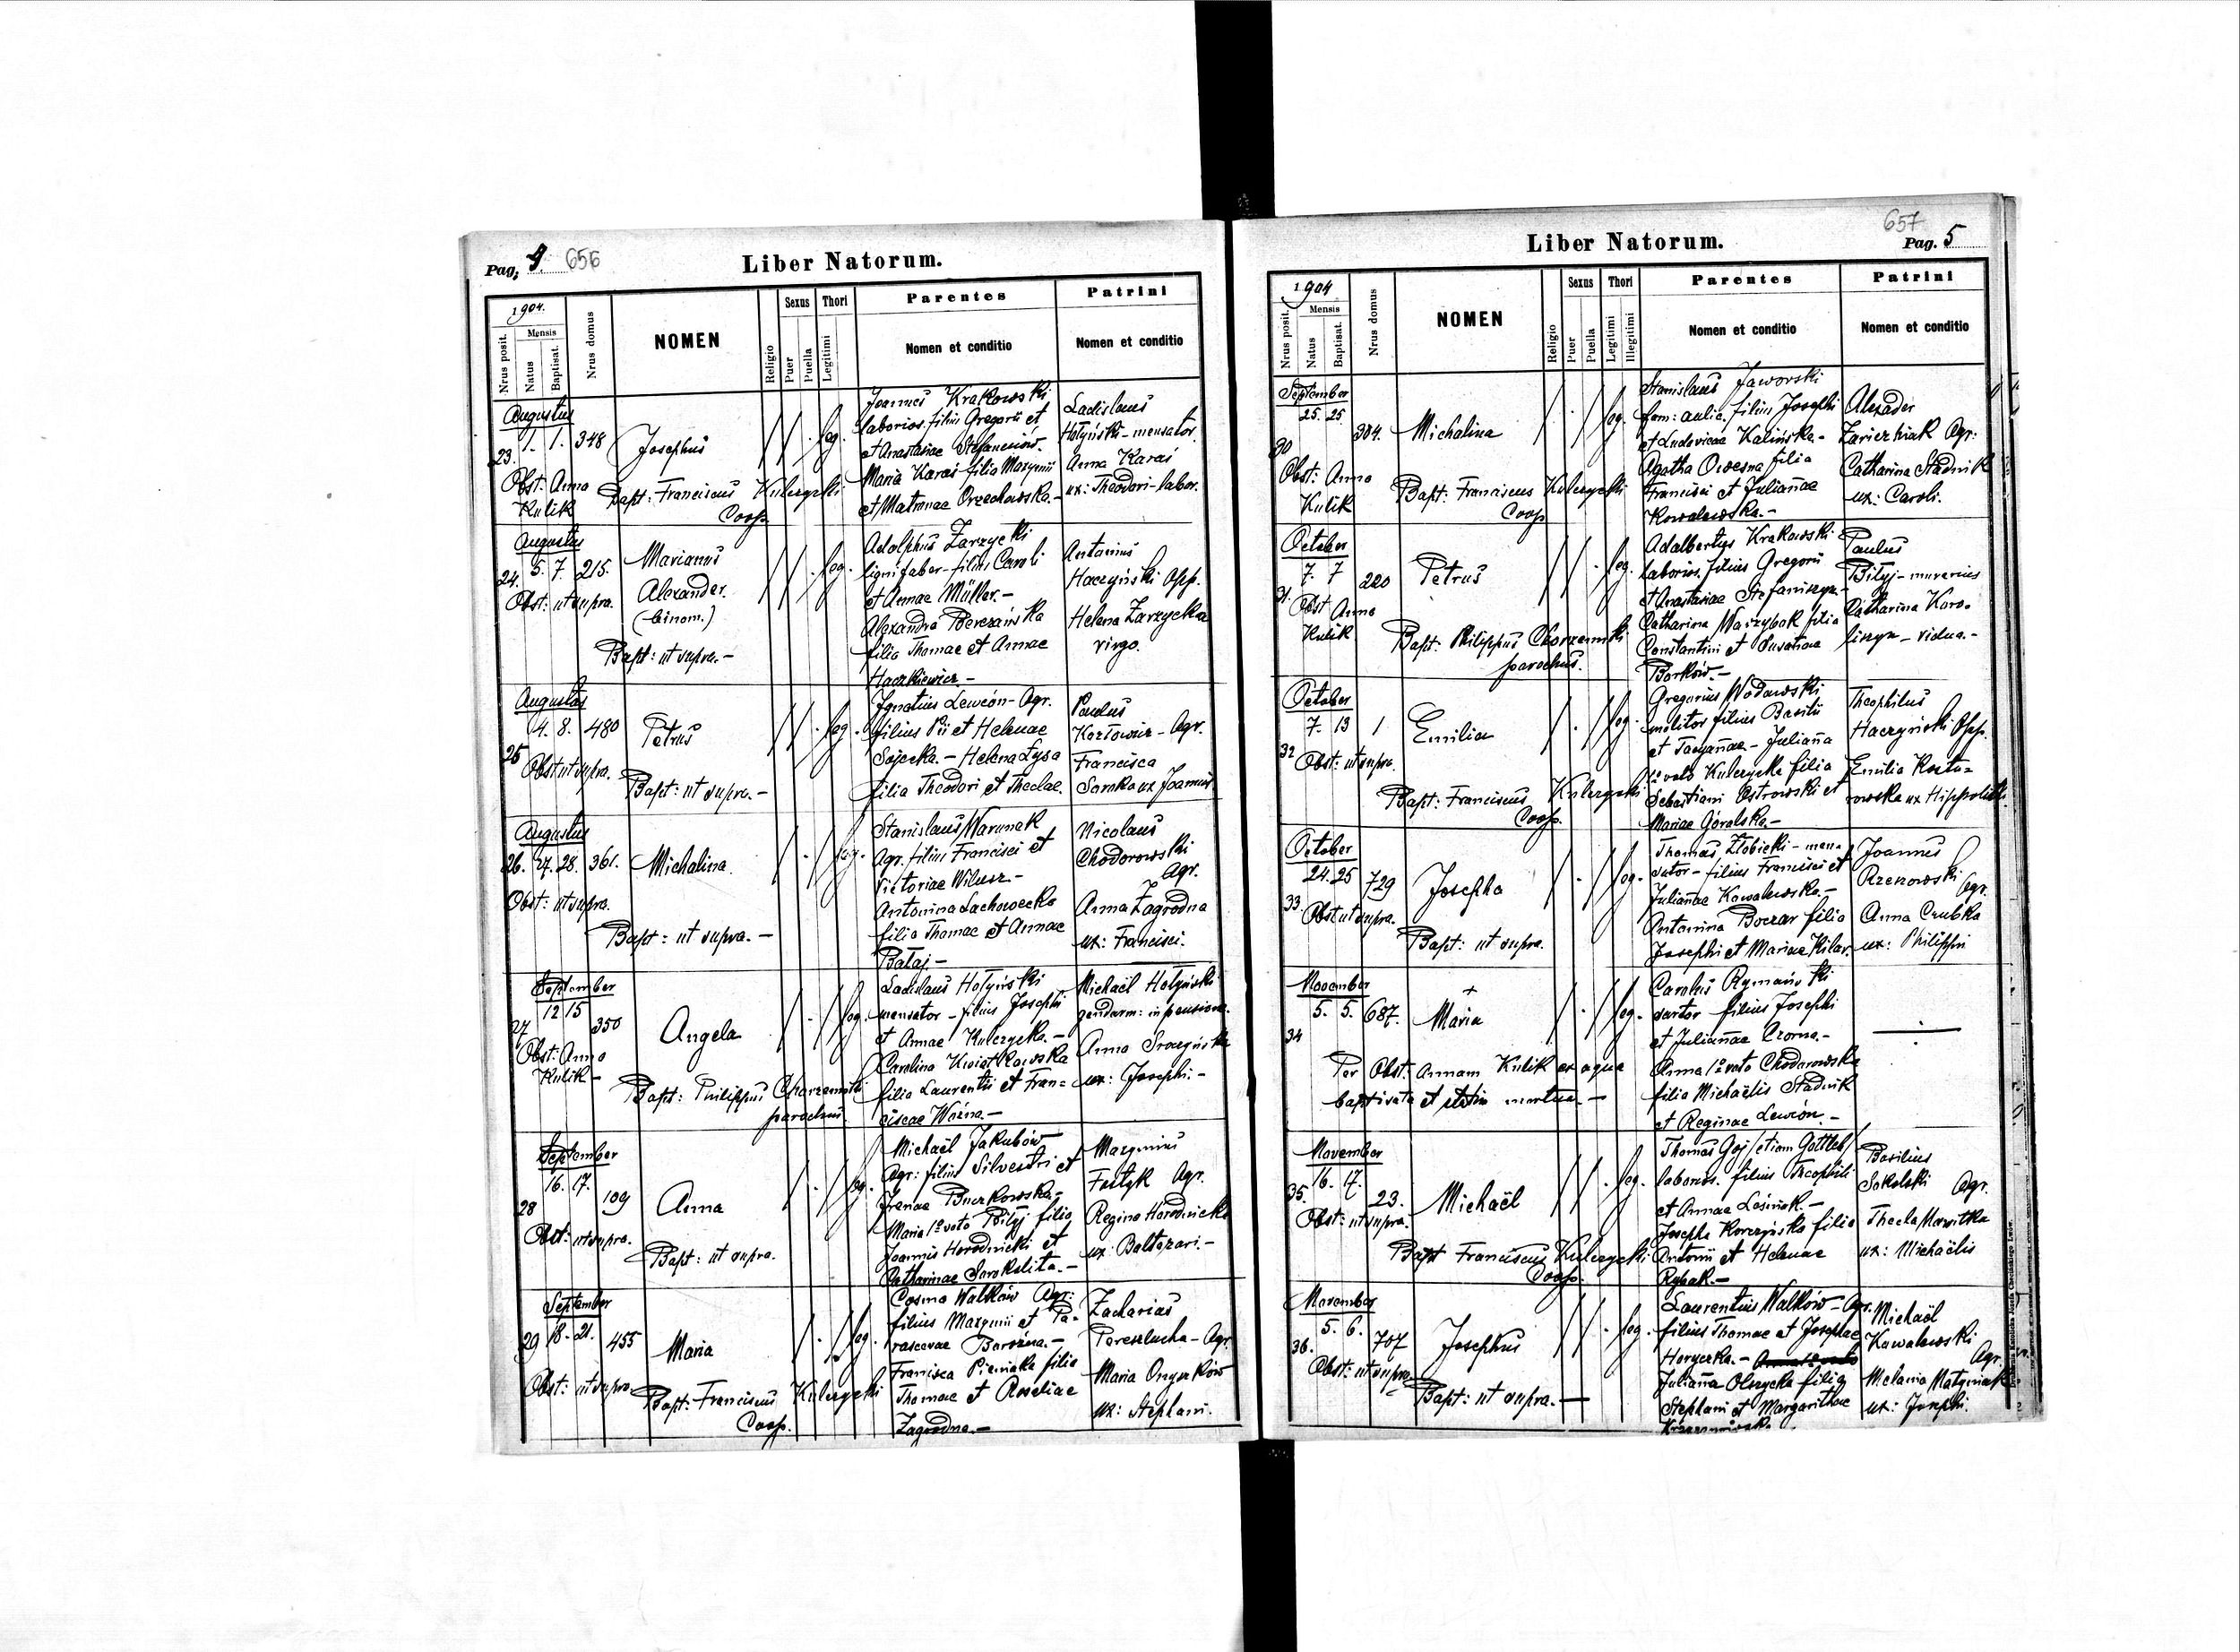 Pag. 4. 656
Liber Natorum.
1904.
Nrus posit.
Mensis
Natus
Baptisat.
Nrus domus
NOMEN
Religio
Sexus
Puer
Puella
Thori
Legitimi
Parentes
Nomen et conditio
Patrini
Nomen et conditio
Augustus
23. 1. 1. 348
Josephus
leg.
Obst: Anna
Kulik
Bapt: Franciscus Kulczycki
Coop.
Joannes Krakowski
laborios. filius Gregorii et
et Anastasiae Stefaneciów.
Maria Karaś filia Maxymi
et Matronae Orzechowska.-
Ladislaus
Hołyński - mensator.
Anna Karaś
ux: Theodori - labor.
Augustus
24. 5. 7. 215.
Marianus
Alexander.
(binom.)
leg.
Obst: ut supra.
Bapt: ut supra.-
Adolphus Zarzycki
lignifaber - filius Caroli
et Annae Müller.-
Alexandra Berezańska
filia Thomae et Annae
Haczkiewicz.-
Antonius
Haczyński Opp.
Helena Zarzycka
virgo.
Augustus
25 4. 8. 480
Petrus
leg.
Obst ut supra.
Bapt: ut supra.-
Ignatius Lewcón - Agr.
filius Pii et Helenae
Sojecka.- Helena Łysa
filia Theodori et Theclae.
Paulus
Kozłowicz - Agr.
Francisca
Soroka ux Joannis
Augustus
26. 27. 28. 361.
Michalina
leg.
Obst: ut supra.
Bapt: ut supra.-
Stanislaus Warunek
Agr. filius Francisci et
Victoriae Wilusz.-
Antonina Lachowecka
filia Thomae et Annae
Bataj.-
Nicolaus
Chodorowski
Agr.
Anna Zagrodna
ux: Francisci.
September
27 12 15 350
Angela
leg.
Obst: Anna
Kulik-
Bapt: Philippus Chorzemski
parochus.
Ladislaus Hołyński
mensator - filius Josephi
et Annae Kulczycka.-
Carolina Kwiatkowska
filia Laurentii et Fran=
ciscae Woźna.-
Michaël Hołyński
gendarm: in pensione.
Anna Sroczyńska
ux: Josephi.-
September
28 16. 17. 109
Anna
leg.
Obst: ut supra.
Bapt: ut supra.
Michaël Jakubów
Agr: filius Silvestri et
Irenae Buczkowska-
Maria 1º voto Biłyj filia
Joannis Horodnicki et
Catharinae Sorokolita.-
Maxymius
Festyk Agr.
Regina Horodnicka
ux: Baltazari.-
September
29 18. 21. 455
Maria
leg.
Obst: ut supra.
Bapt: Franciscus Kulczycki
Coop.
Cosma Walków Agr:
filius Maxymi et Pa-
rascevae Borózna.-
Francisca Pieniak filia
Thomae et Rosaliae
Zagrodna.-
Zacharias
Pereszlucha - Agr.
Maria Onyszków
ux: Stephani.
657
Liber Natorum.
Pag. 5
1904
Nrus posit.
Mensis
Natus
Baptisat.
Nrus domus
NOMEN
Religio
Sexus
Puer
Puella
Thori
Legitimi
Illegitimi
Parentes
Nomen et conditio
Patrini
Nomen et conditio
September
30 25. 25 384.
Michalina
leg.
Obst: Anna
Kulik
Bapt: Franciscus Kulczycki
Coop
Stanislaus Jaworski
fam: aulic. filius Josephi
et Ludovicae Kalińska.-
Agatha Owesna filia
Francisci et Juliañae
Kowalewska.-
Alexader
Zariczniak Agr:
Catharina Stadnik
ux: Caroli.
October
31. 7. 7 220
Petrus
leg.
Obst Anna
Kulik
Bapt: Philippus Chorzemski
parochus.
Adalbertus Krakowski
laborios. filius Gregorii
et Anastasiae Stefaniszyn.-
Catharina Waczybok filia
Constantini et Susannae
Borków.-
Paulus
Biłyj - murarius
Catharina Karo=
liszyn - vidua.-
October
32 7. 13 1
Emilia
leg.
Obst: ut supra.
Bapt: Franciscus Kulczycki
Coop.
Gregorius Wodowski
molitor filius Basilii
et Tacyañae - Juliaña
1º voto Kulczycka filia
Sebastiani Ostrowski et
Mariae Góralska.-
Theophilus
Haczyński Opp.
Emilia Koztu=
rowska ux Hippoliti.
October
33. 24. 25 729
Josepha
leg.
Obst ut supra.
Bapt: ut supra.
Thomas Złobicki - men=
sator - filius Francisci et
Juliañae Kowalewska.-
Antonina Boczar filia
Josephi et Mariae Kilar.
Joannes
Rzenowski
Agr.
Anna Czubka
ux: Philippi
November
34 5. 5. 687.
+
Maria
leg.
Per Obst. Annam Kulik ex aqua
baptisata et statim mortua.-
Carolus Rymański
sartor filius Josephi
et Juliañae Czorna.-
Anna 1º voto Chodorowska
filia Michaëlis Stadnik
et Reginae Lewcón.-
November
35. 16. 17. 23.
Michaël
leg.
Obst: ut supra.
Bapt Franciscus Kulczycki
Coop.
Thomas Goj /etiam Gottleb/
laborios. filius Theophili
et Annae Lesiniak.-
Josepha Korczyńska filia
Antonii et Helenae
Rybak.-
Basilius
Sokolski Agr.
Thecla Mawitka
ux: Michaëlis
November
36. 5. 6. 707
Josephus
leg.
Obst: ut supra
Bapt: ut supra.-
Laurentius Walków - Agr.
filius Thomae et Josephae
Horycka.-
Juliaña Olszycka filia
Stephani et Margarithae
Michaël
Kowalewski
Agr.
Melania Matyniak
ux: Josephi.